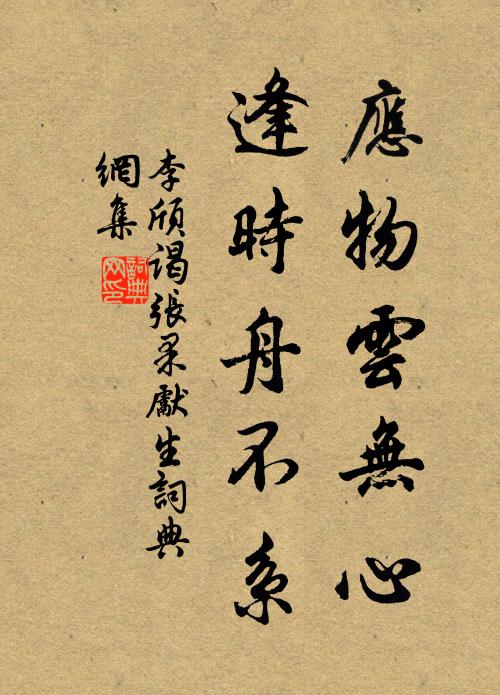 應物雲無心
逢時舟不系
李頎謁張果獻生詞典
網集
詞典
網印